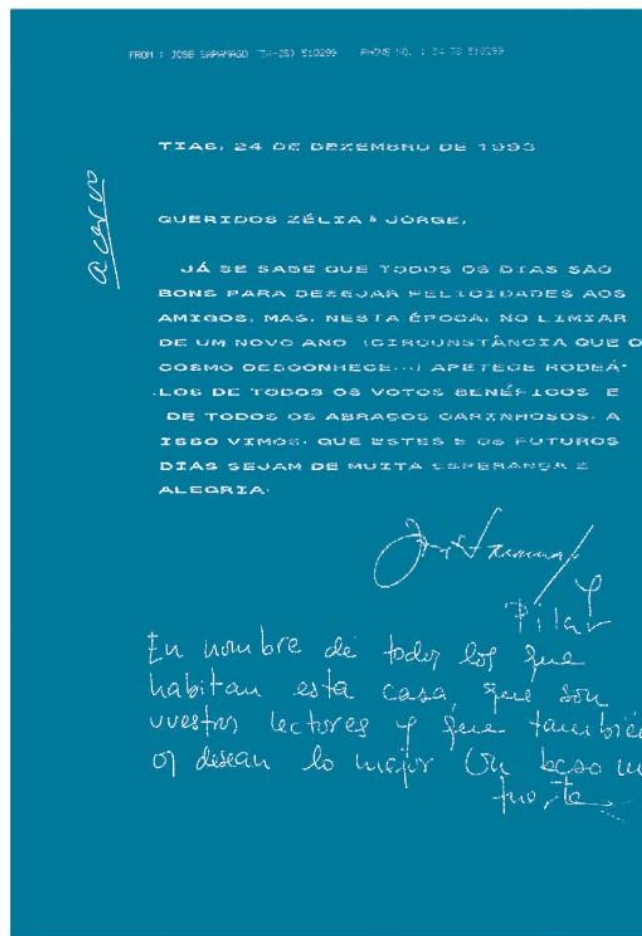 FROM : JOSE SARAMAGO (34-28) 510299 PHONE NO. : 34 28 510299
TIAS, 24 DE DEZEMBRO DE 1993
acervo
QUERIDOS ZÉLIA & JORGE,
JÁ SE SABE QUE TODOS OS DIAS SÃO
BONS PARA DESEJAR FELICIDADES AOS
AMIGOS. MAS, NESTA ÉPOCA, NO LIMIAR
DE UM NOVO ANO (CIRCUNSTÂNCIA QUE O
COSMO DESCONHECE...) APETECE RODEÁ-
LOS DE TODOS OS VOTOS BENÉFICOS E
DE TODOS OS ABRAÇOS CARINHOSOS. A
ISSO VIMOS. QUE ESTES E OS FUTUROS
DIAS SEJAM DE MUITA ESPERANÇA E
ALEGRIA.
José Saramago
y
Pilar
En nombre de todos los que
habitan esta casa, que son
vuestros lectores y que también
os desean lo mejor Un beso
fuerte